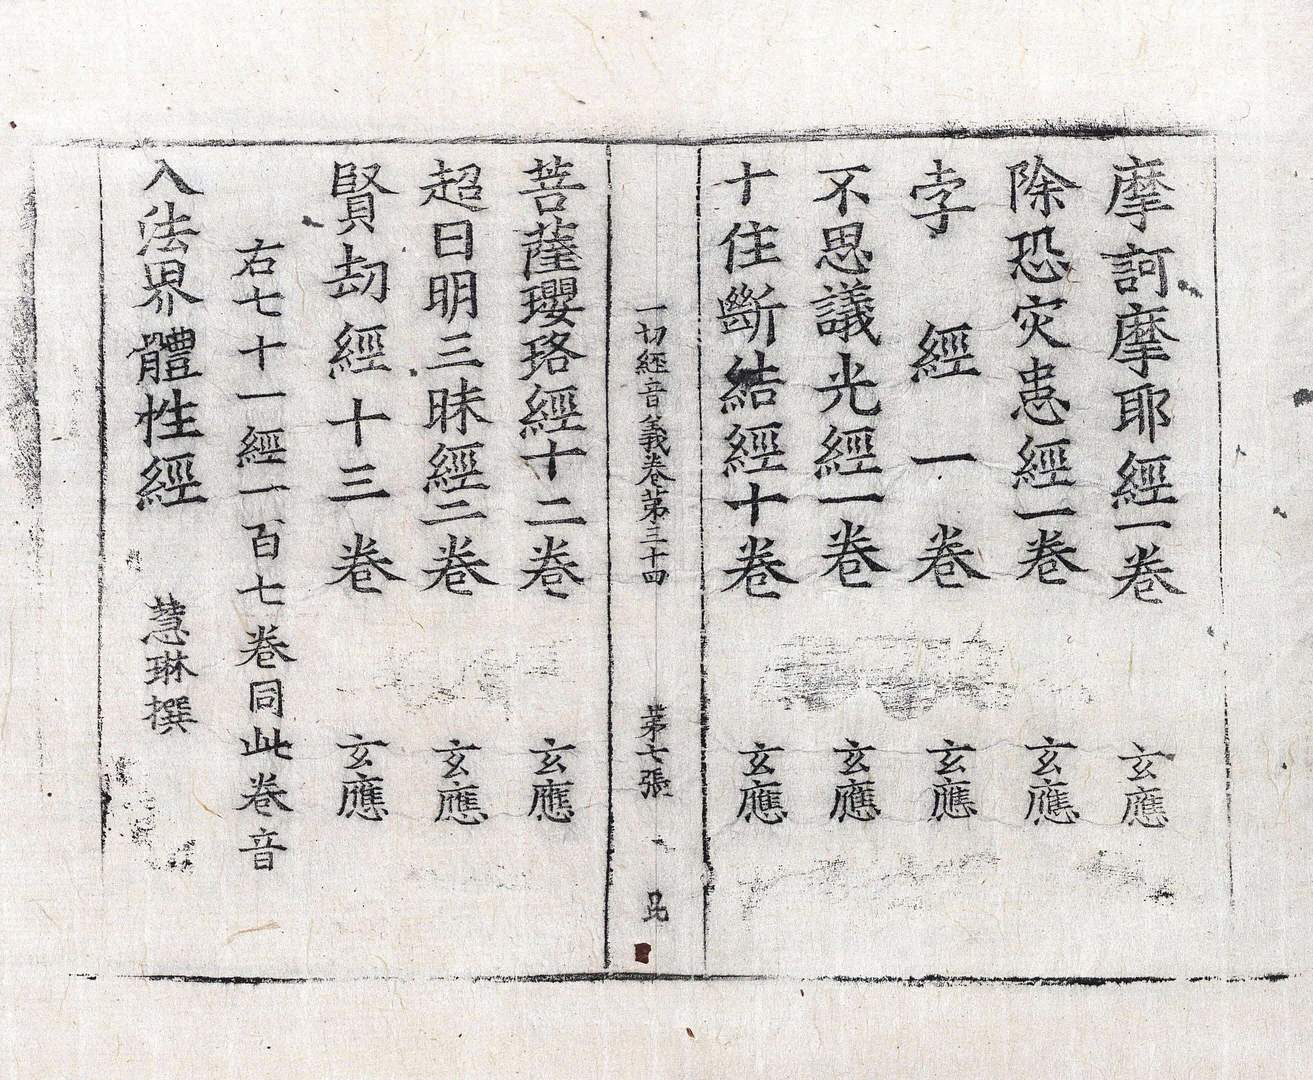 摩訶摩耶經一卷 玄應
除恐灾患經一卷 玄應
孛經一卷 玄應
不思議光經一卷 玄應
十住斷結經十卷 玄應
一切經音義卷第三十四 第七張
菩薩瓔珞經十二卷 玄應
超日明三昧經二卷 玄應
賢劫經十三卷 玄應
右七十一經一百七卷同此卷音
入法界體性經 慧琳撰